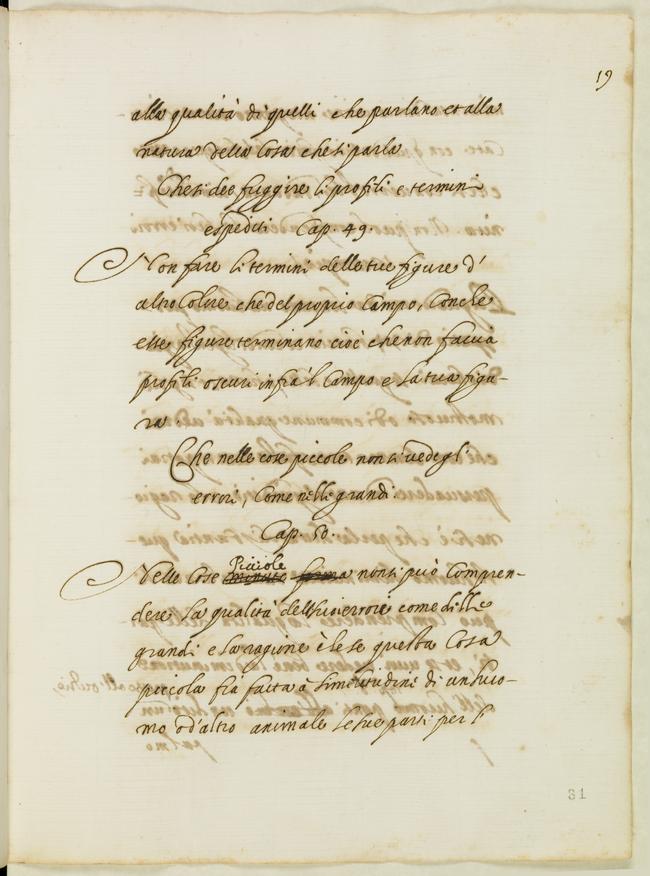 19
alla qualità di quelli che parlano et alla
natura della Cosa che si parla
Che si dee fuggire li profili e termini
espediti Cap. 49.
Non fare li termini delle tue figure d'
altro Colore che del proprio Campo, Con che
esse figure terminano cioè che non faccia
profili oscuri infra 'l Campo e la tua figu-
ra.
Che nelle cose piccole non si vede gli
errori, Come nelle grandi.
Cap. 50.
Piccole
Nelle Cose minute forma non si può Compren-
dere la qualità dell'suo errore come delle
grandi e la ragione è che se questa Cosa
piccola fia fatta à similitudine di un huo-
mo o d'altro animale le sue parti per l'
31